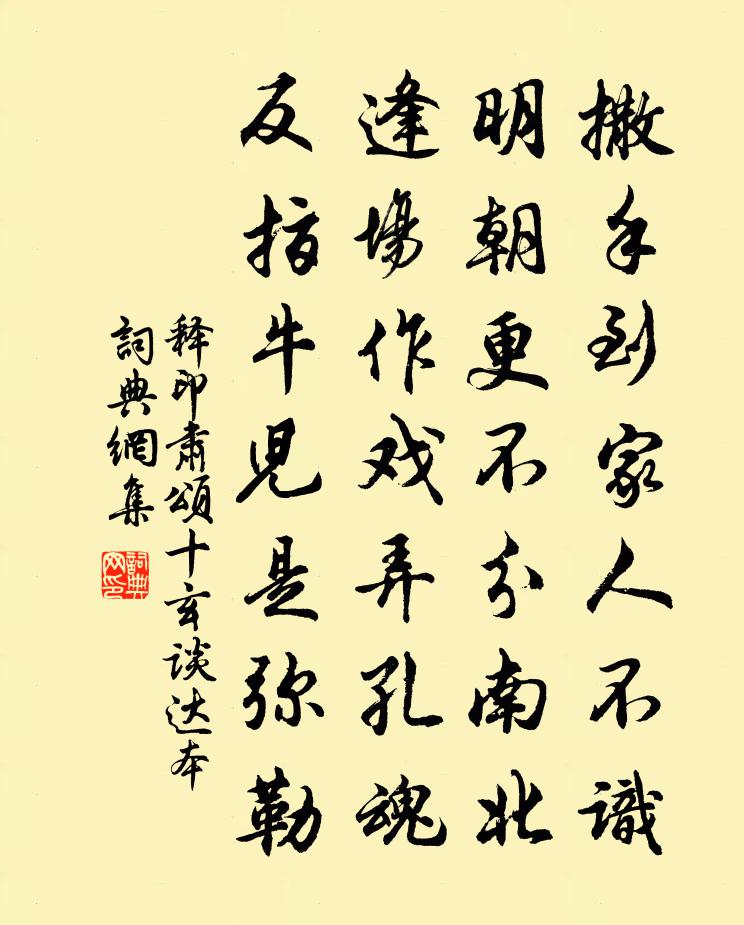 撒手到家人不識
明朝更不分南北
逢場作戏弄孔魂
反指牛兒是弥勒
释印肅頌十玄谈达本
詞典網集
詞典网印